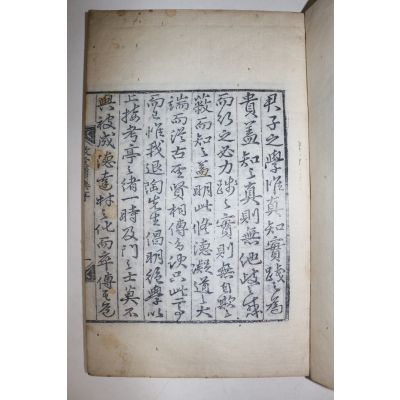 君子之學惟真知實踐之爲
貴盖知之真則無他歧惑
而行之必力踐之實則無自欺之
蔽而知之盖明此修德凝道之大
端而從古聖賢相傳旨訣只此而
而已惟我退陶先生倡明絶學以
上接考亭之緖一時及門之士莫不
與被成德達材之化而卒傳